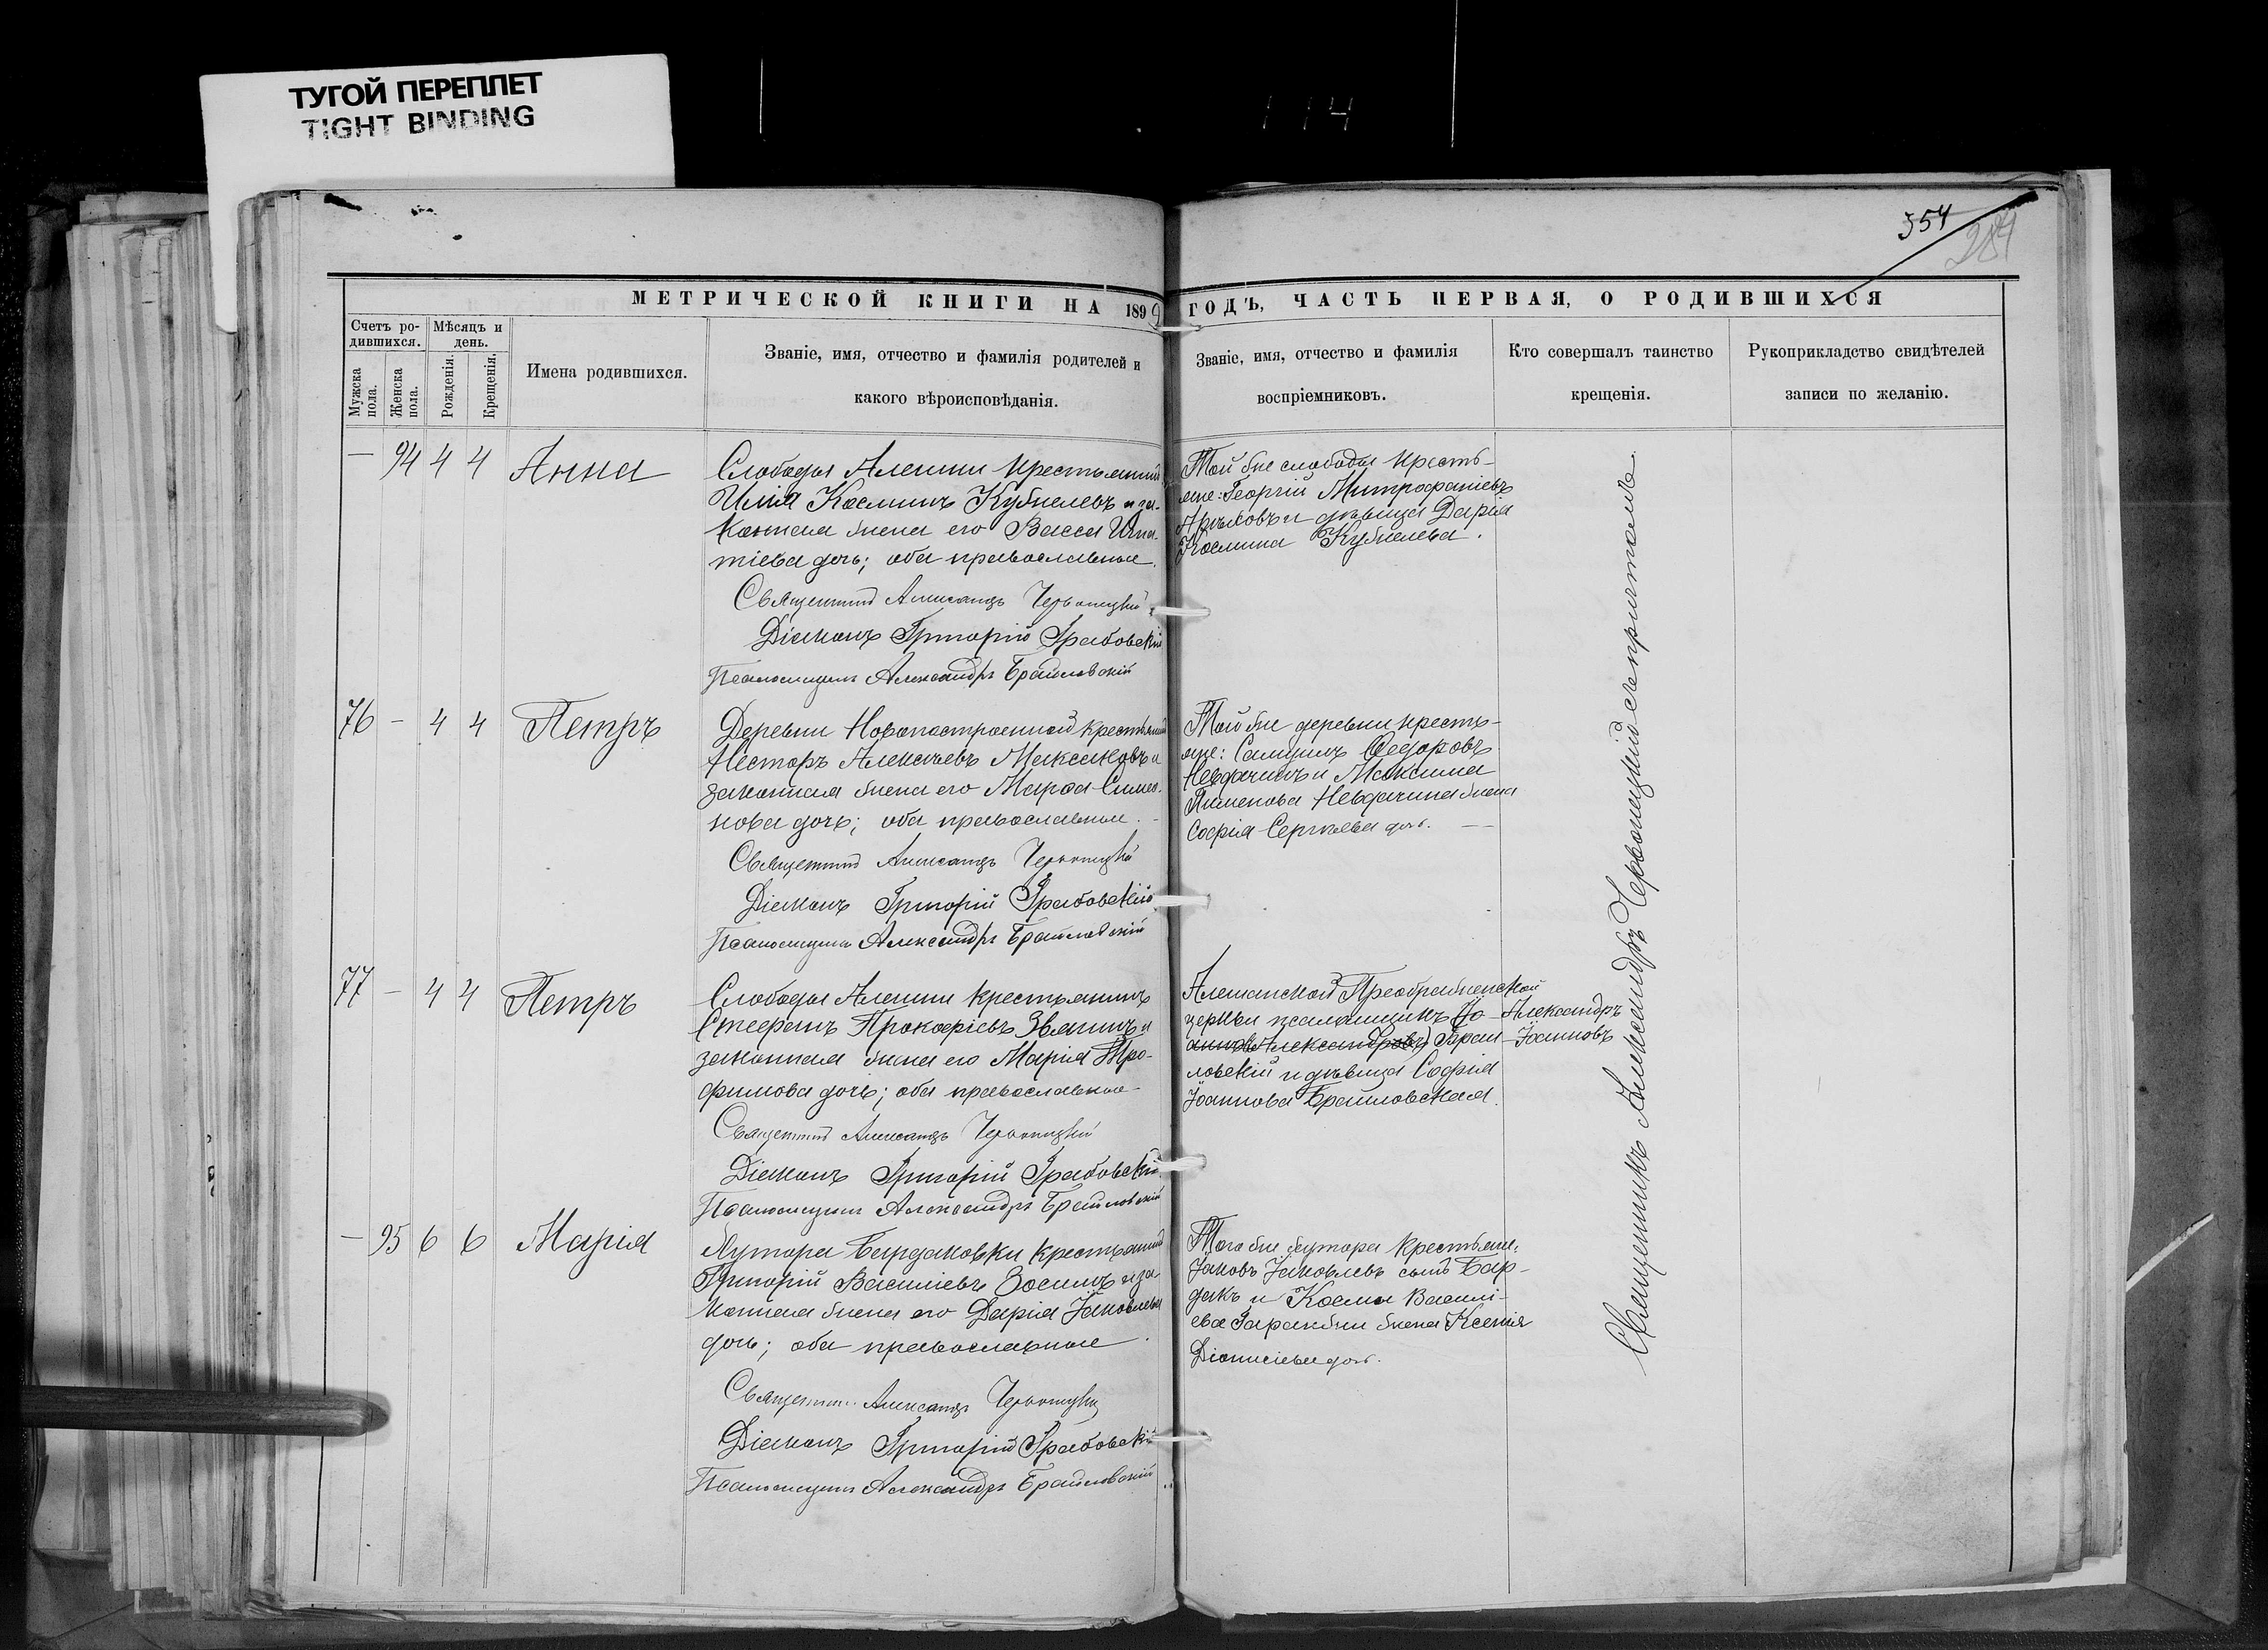 ТУГОЙ ПЕРЕПЛЕТ
TIGHT BINDING
114
354
МЕТРИЧЕСКОЙ КНИГИ НА 1899
ГОДЪ, ЧАСТЬ ПЕРВАЯ, О РОДИВШИХСЯ
Счетъ ро-
дившихся.
Мѣсяцъ и
день.
Мужска
пола.
Женска
пола.
Рожденія.
Крещенія.
Имена родившихся.
Званіе, имя, отчество и фамилія родителей и
какого вѣроисповѣданія.
Званіе, имя, отчество и фамилія
воспріемниковъ.
Кто совершалъ таинство
крещенія.
Рукоприкладство свидѣтелей
записи по желанію.
— 94 4 4 Анна
Слободы Алешни крестьянинъ
Илія Косминъ Кубпелевъ и за-
конная жена его Васса Ипа-
тіева дочь; оба православные.
Священникъ Александръ Червонецкій
Діаконъ Григорій Грабовскій
Псаломщикъ Александръ Браиловскій
Той же слободы кресть-
яне: Георгій Митрофаніевъ
и дѣвица Дарія
Космина Кубпелева.
76 — 4 4 Петръ
Деревни Новопостроенной крестьянинъ
Несторъ Алексѣевъ Максаковъ и
законная жена его Марѳа Симео-
нова дочь; оба православные.
Священникъ Александръ Червонецкій
Діаконъ Григорій Грабовскій
Псаломщикъ Александръ Браиловскій
Той же деревни кресть-
яне: Самуилъ Ѳедоровъ
Невдачинъ и Максима
Пименова Невдачина жена
Софія Сергѣева дочь. —
77 — 4 4 Петръ
Слободы Алешни крестьянинъ
Стефанъ Прокофіевъ Звягинъ и
законная жена его Марія Тро-
фимова дочь; оба православные
Священникъ Александръ Червонецкій
Діаконъ Григорій Грабовскій
Псаломщикъ Александръ Браиловскій
Алешанской Преображенской
церкви псаломщикъ Іо- Александръ
анновъ Александровъ Браи- Іоанновъ
ловскій и дѣвица Софія
Іоаннова Браиловская.
— 95 6 6 Марія
Хутора Бардаковки крестьянинъ
Григорій Василіевъ Зосимъ и за-
конная жена его Дарія Іаковлева
дочь; оба православные.
Священникъ Александръ Червонецкій
Діаконъ Григорій Грабовскій
Псаломщикъ Александръ Браиловскій
Того же хутора крестьяне:
Іаковъ Іаковлевъ сынъ Бар-
дакъ и Космы Василі-
ева жена Ксенія
Діонисіева дочь.
Священникъ Александръ Червонецкій